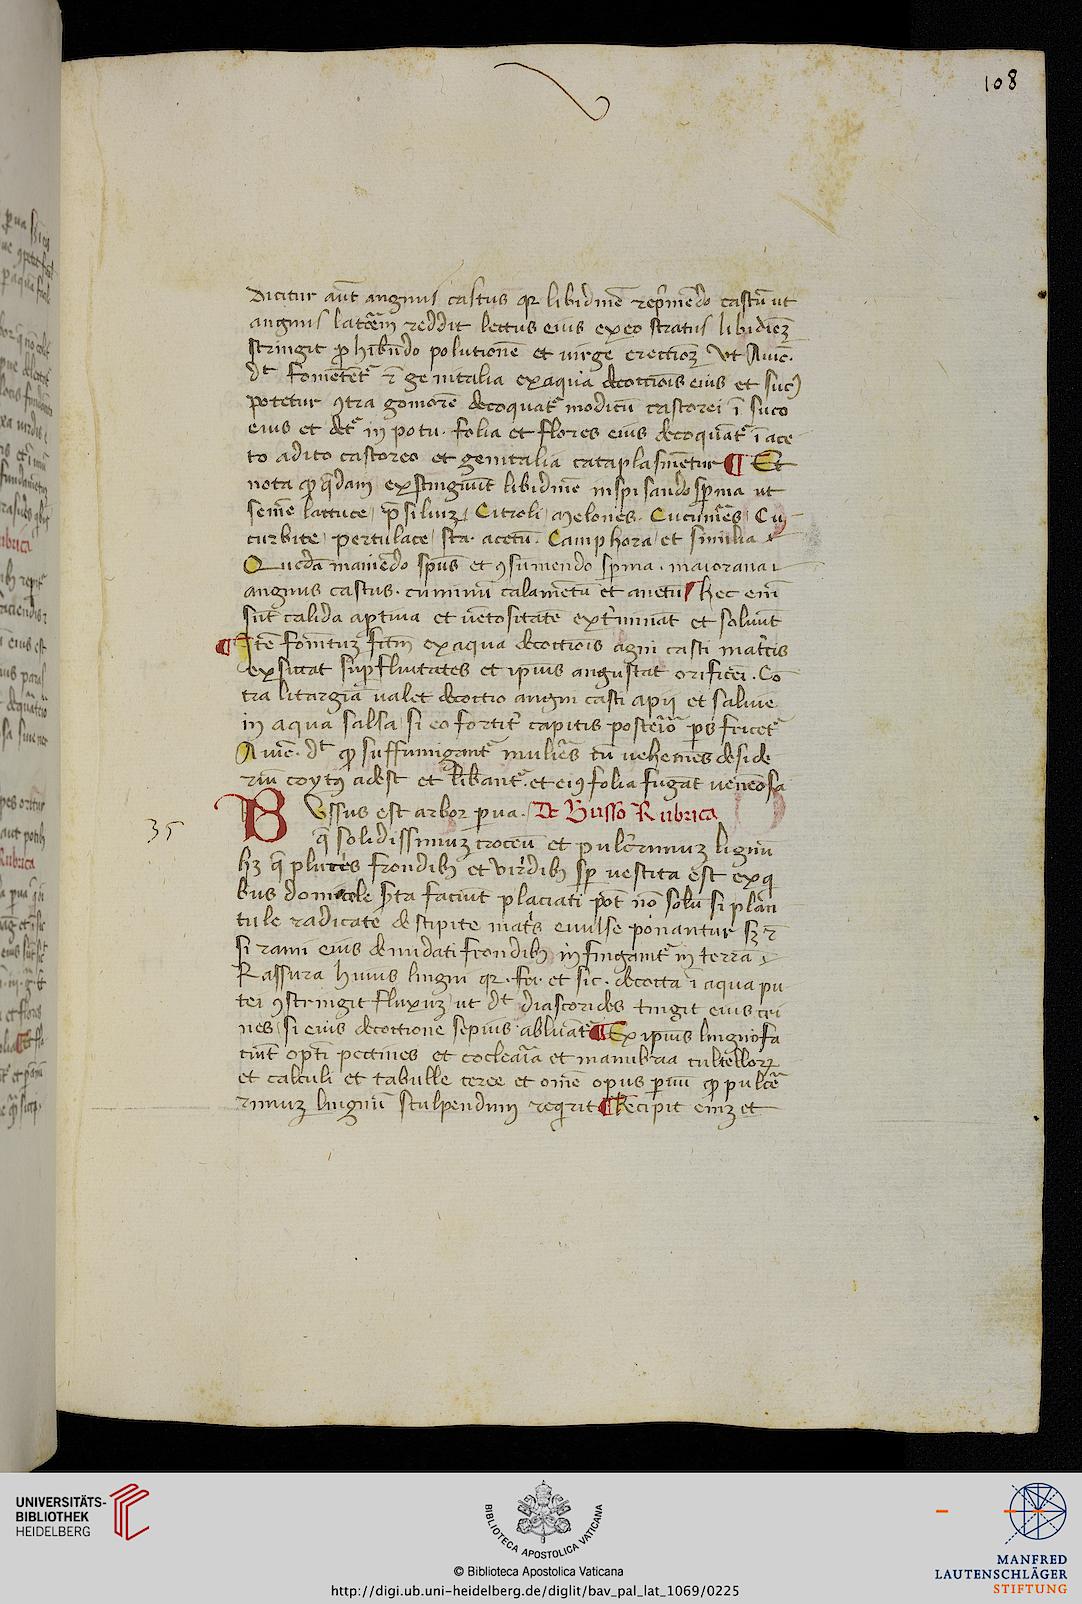 108
dicitur aūt angnus castus qr libidinē rep̄mēdo castū ut
angnus latcēm reddit lectus eius ex eo stratus libidiēz
stringit ꝓ hibēdo polutionē et uirge erectioēz Vt Auic.
dt̄ fomētēt² ī genitalia ex aqua decoctiōis eius et suc9
potetur 9tra gomorē decoquat² modicū castorei ī suco
eius et det² in potu. folia et flores eius decoquāt² ī ace
to adito castoreo et genitalia cataplasmētur ¶ Et
nota qꝫ q̄dam exstingnūt libidinē inspisando sp̄ma ut
semē lattuce psiliuz, Citroli melones. Cucum̄es, Cu
curbite, pertulace, acetū. Camphora, et similia
Quedā maniēdo sp̄us et 9sumendo sp̄ma. maiorana
angnus castus. cuminū calamētū et anetū, hec eīm
sūt calida aptiua et uētositatē ext̄mināt et soluūt
¶ Itē fomētuz ex aqua decoctiōis agni casti mat̄cis
exsicat sup̄fluitates et ip̄ius angustat orificēi. Cō
tra litargiā ualet decoctio angni casti apij et saluie
in aqua salsa, si eo fortit̄ capitis post̄iōa ps fricet²
Auic. dt̄ qꝫ suffumigant² mulieēs cū uehemēs deside
riū coytꝰ adest et libant². et eiꝰ folia fugat uēneosa
BUssus est arbor ꝑua. De Busso Rubrica
35
q̄ solidissimuz croceū et pulc̄rimuz lignū
hꝫ q̄ plures frondibꝫ et viridibꝫ sp̄ uestita est ex q
bus faciūt placiati pōt nō solū si plāti
tule radicate de stipite mat̄s euulse ponantur sꝫ ī
si rami eius denudati frondibꝫ infingānt² in terrā
Rassura huius lingni qr. fri. et sic. decocta ī aqua pu
tei 9stringit fluxuz, ut dt̄ diascorides tingit eius cri
nes, si eius decoctione sepius abluāt² ¶ Ex ip̄ius lingno fa
ciūt opt̄i pectines et cocleaīa et manubria cultelloꝝ
et calculi et tabulle ceree et omē opus ꝑuū qꝫ pulcē
rimuz lingnū sculpendum req̄rit ¶ Recipit eīnz et
UNIVERSITÄTS-
BIBLIOTHEK
HEIDELBERG
BIBLIOTECA APOSTOLICA VATICANA
© Biblioteca Apostolica Vaticana
http://digi.ub.uni-heidelberg.de/diglit/bav_pal_lat_1069/0225
MANFRED
LAUTENSCHLÄGER
STIFTUNG